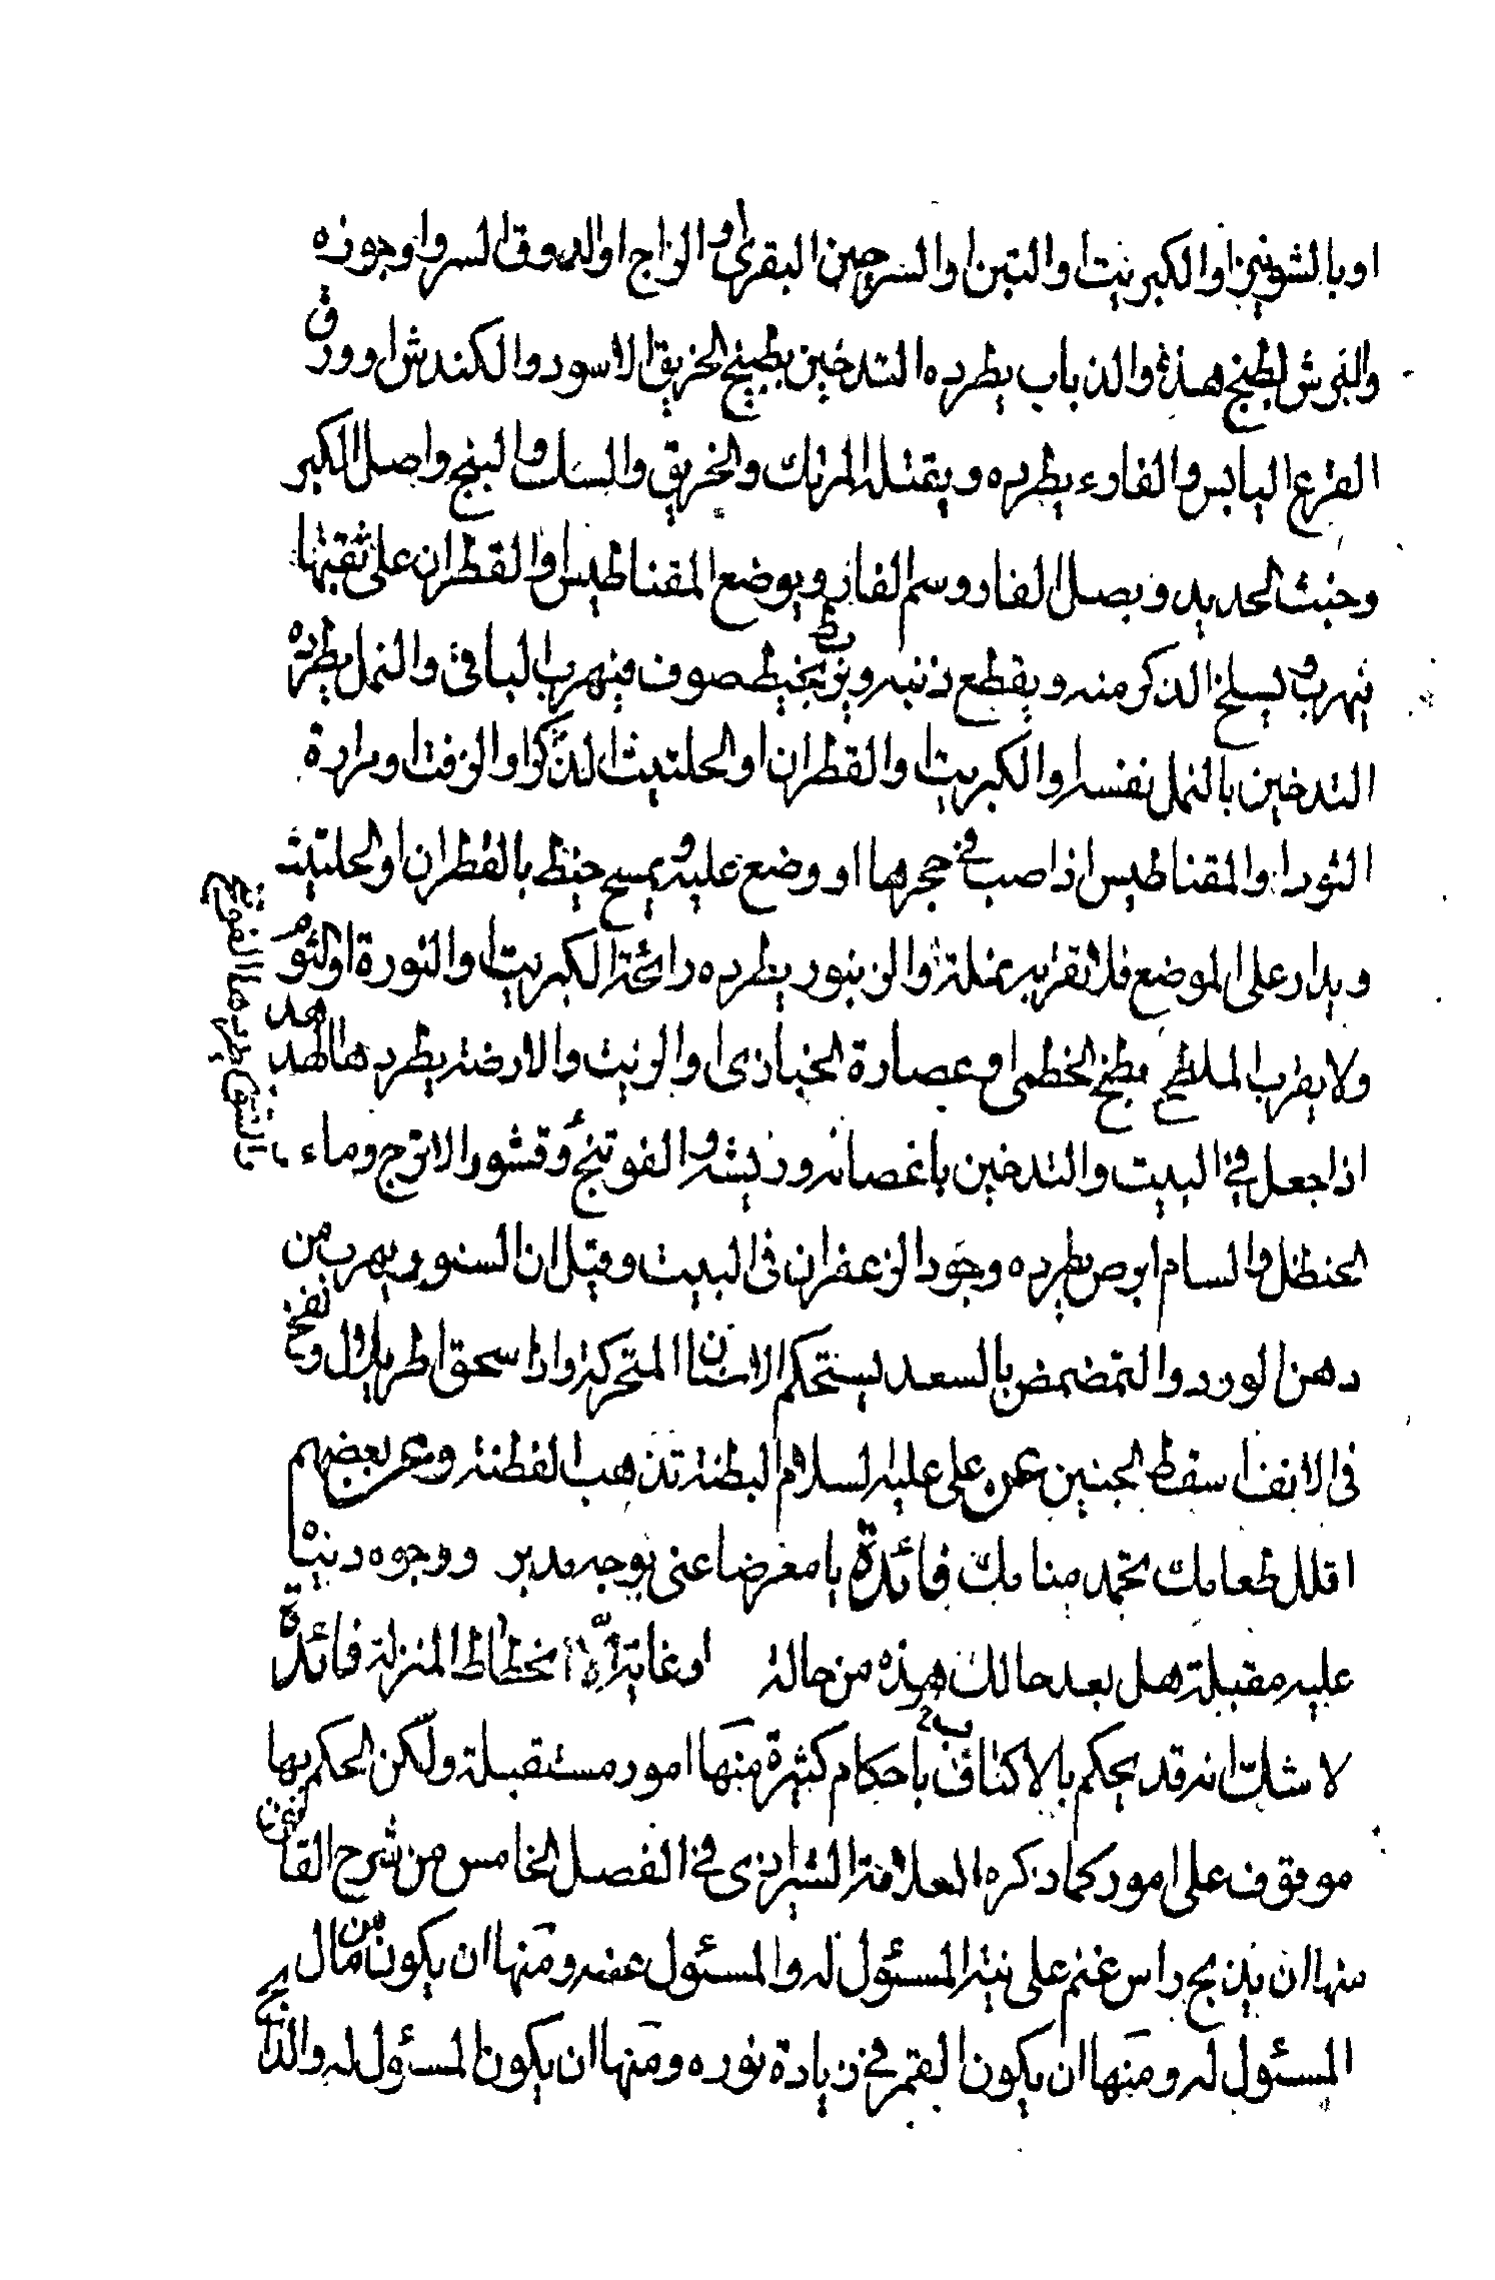 او بالشونيز او الكبريت او التبن او السرجين البقري او الزاج او ورق السرو او جوزه
والفرش بطبخ هذه والذباب يطرده التدخين بطبيخ الخربق الاسود والكندش او ورق
القرع اليابس والفارء يطرده ويقتله المرتك والخربق والسك والبنج واصل الكبر
وخبث الحديد وبصل الفار وسم الفار ويوضع المقناطيس او القطران على ثقبتها
فيهرب ويسلخ الذكر منه ويقطع ذنبه ويربط بخيط صوف فيهرب الباقي والنمل يطرده
التدخين بالنمل نفسه او الكبريت او القطران او الحلتيت الذكر او الزفت او مرارة
الثور او المقناطيس اذا صب في حجرها او وضع عليه ويمسح خيط بالقطران او الحلتيت
ويدار على الموضع فلا تقربه نملة والزنبور يطرده رائحة الكبريت او النورة او الثوم
ولا يقرب الملطخ بطبخ الخطمى او عصارة الخبازى او الزيت والارضة يطردها الهدهد
اذا جعل في البيت والتدخين باغصانه وريشه والفوتنج وقشور الاترج وماء
الحنظل والسام ابرص يطرده وجود الزعفران في البيت وقيل ان السنور يهرب من
دهن الورد والتمضمض بالسعد يستحكم الاسنان المتحركة واذا سحق اطريلال ونفخ
في الانف اسقط الجنين عن على عليه السلام البطنة تذهب الفطنة وعن بعضهم
اقلل طعامك تحمد منامك فائدة يا معرضا عنى بوجه مدبر ووجوه دنياه
عليه مقبلة هل بعد حالك هذه من حالة او غاية الا انحطاط المنزلة فائدة
لا شك انه قد يحكم بالاكتاف باحكام كثيرة منها امور مستقبلة ولكن الحكم بها
موقوف على امور كما ذكره العلامة الشيرازى في الفصل الخامس من شرح القانون
منها ان يذبح راس غنم على نية المسئول له والمسئول عنه ومنها ان يكون من مال
المسئول له ومنها ان يكون القمر في زيادة نوره ومنها ان يكون المسئول له والذابح